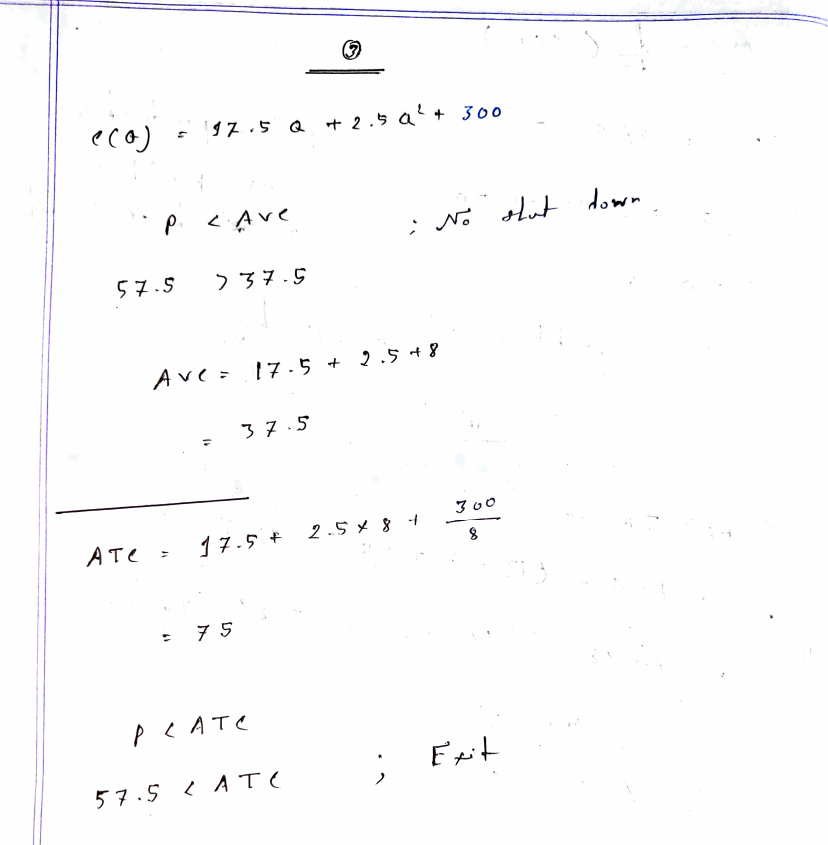 ③
C(Q) = 17.5 Q + 2.5 Q² + 300
P < AVC ; No shut down.
57.5 > 37.5
AVC = 17.5 + 2.5 + 8
= 37.5
ATC = 17.5 + 2.5 × 8 + 300/8
= 75
P < ATC
57.5 < ATC ; Exit